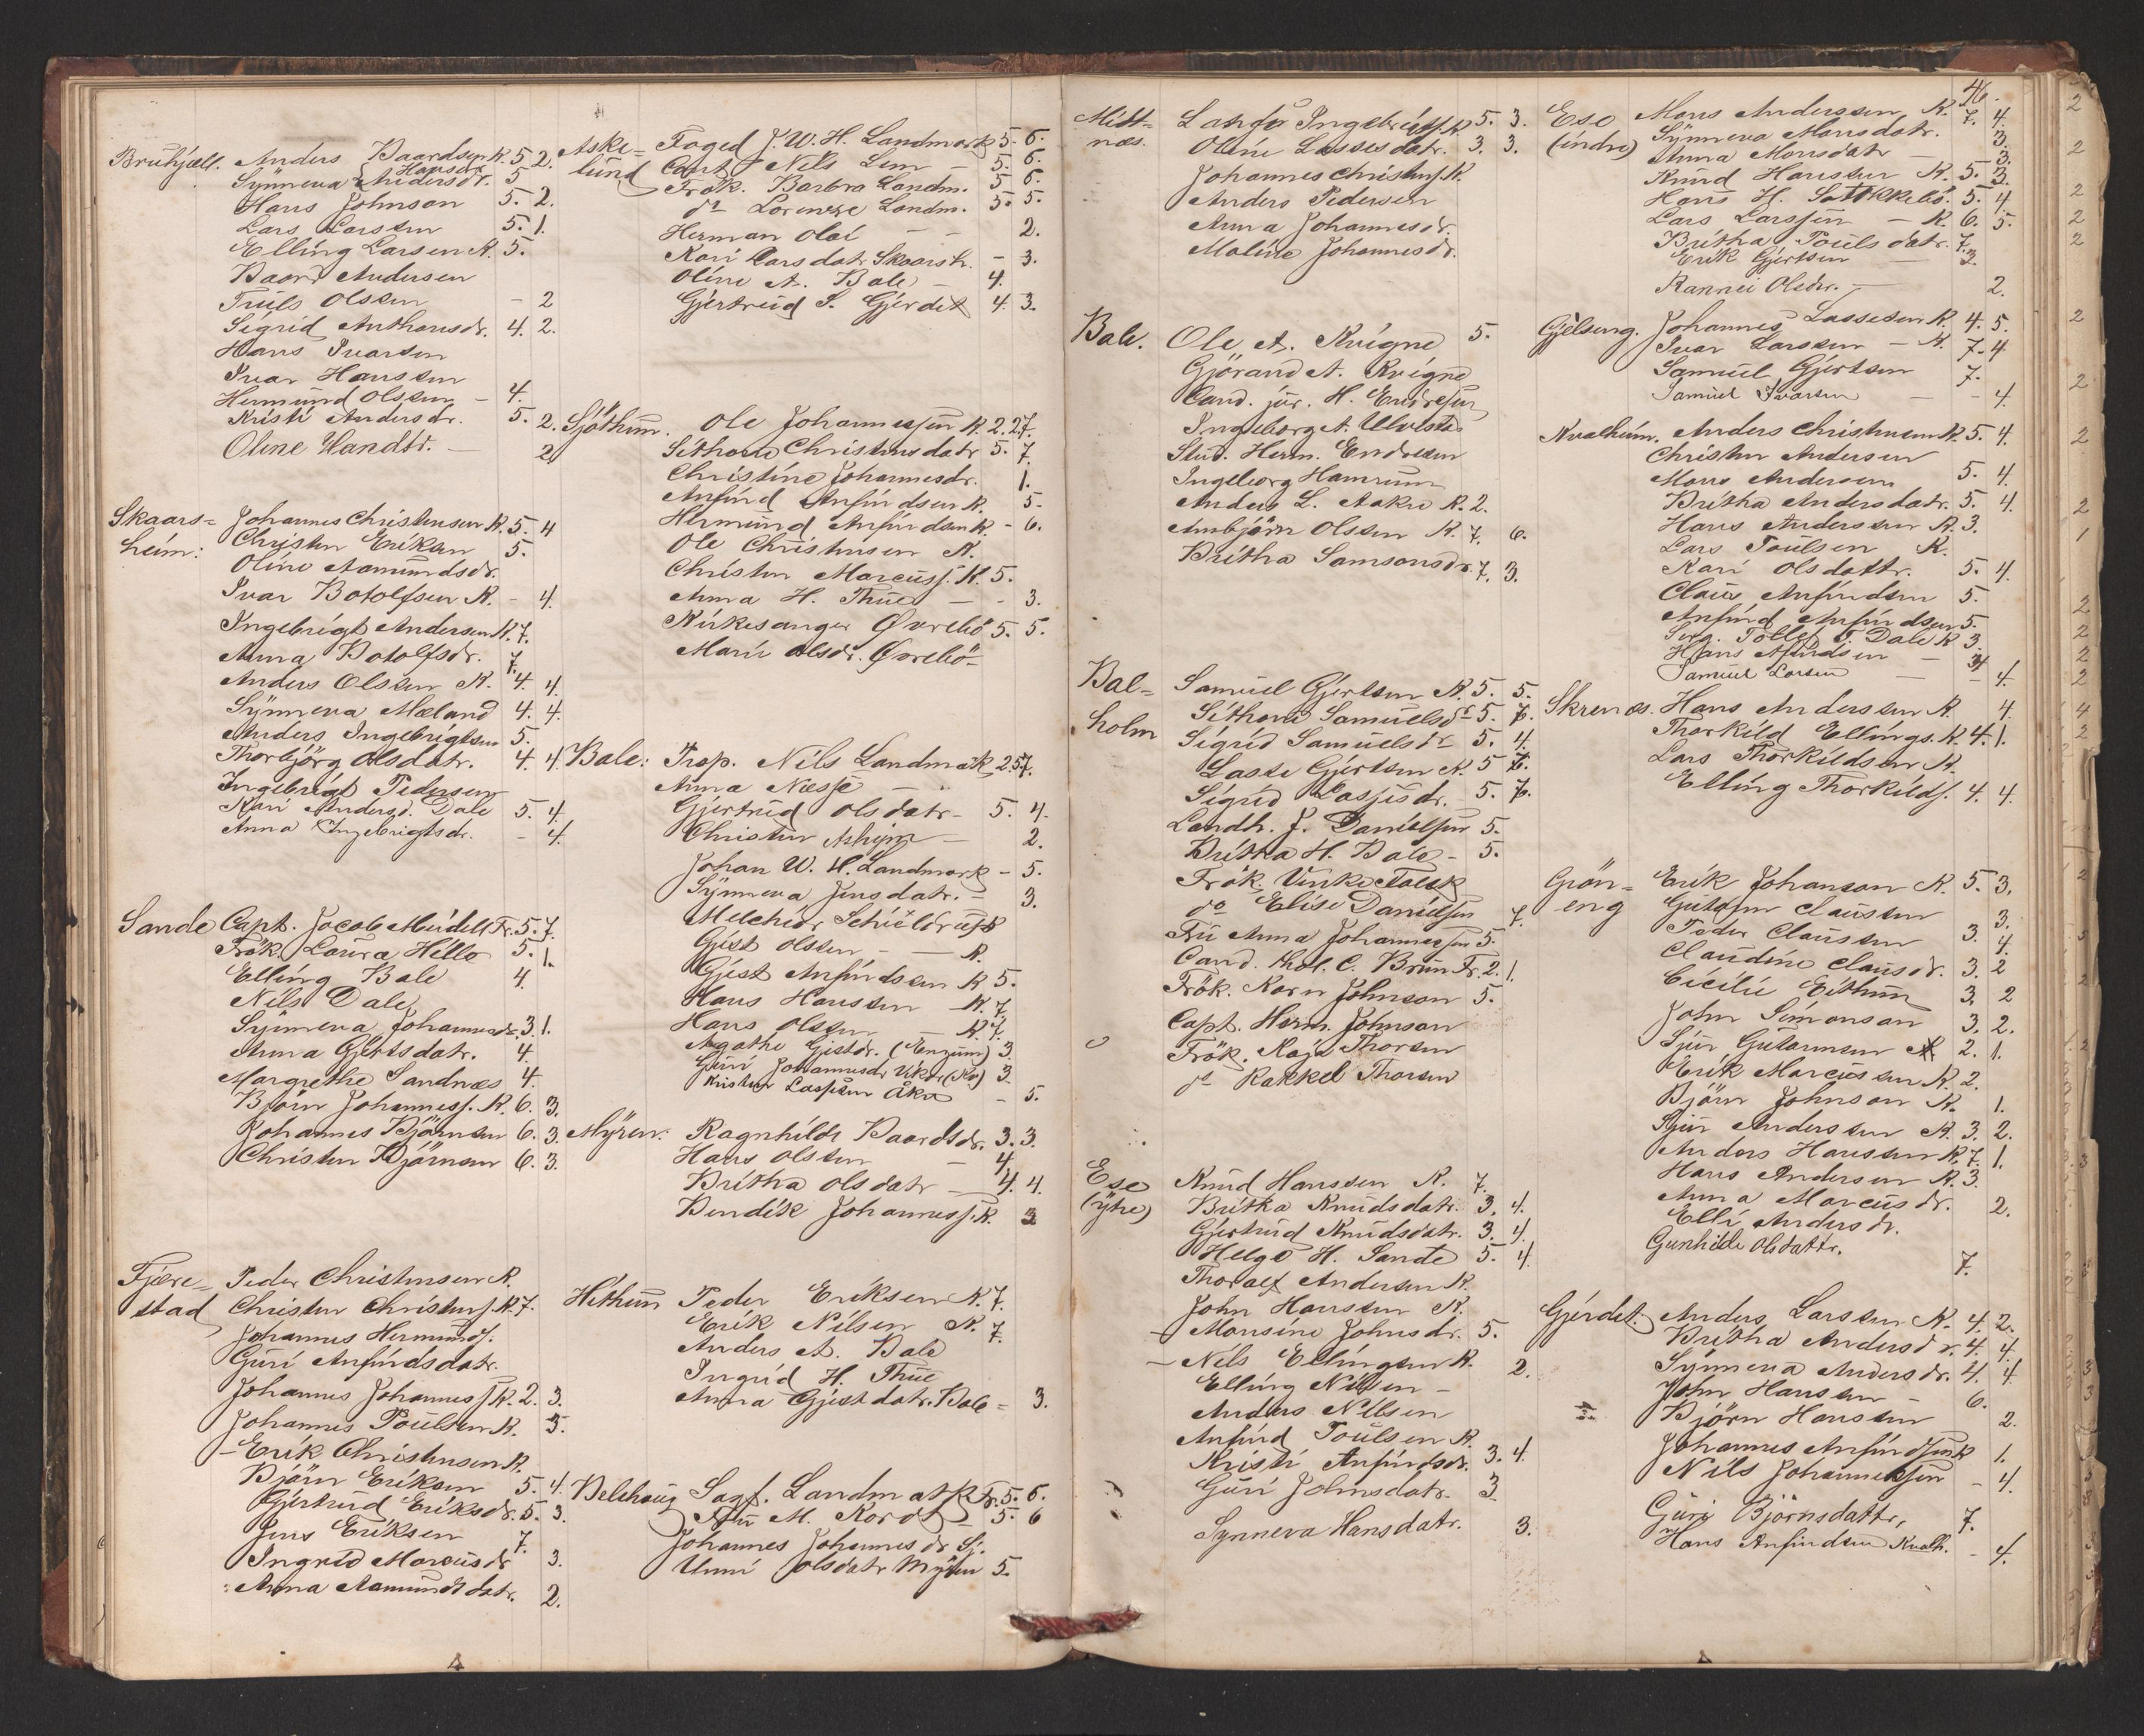 Bruhjæll. Anders Baardsen K. 5. 2.
Hansdr
Synneva Andersdr. 5
Hans Johnson 5. 2.
Lars Larsen 5. 1.
Elling Larsen K. 5.
Baard Andersen
Truls Olsen - 2
Sigrid Anthonsdr. 4. 2.
Hans Ivarsen
Ivar Hanssen
Hermund Olssen - 4.
Kristi Andersdr. 5. 2.
Oline Handtr. - 2
Skaars= Johannes Christensen K. 5. 4
heim: Christen Eriksen 5.
Oline Aamundsdr.
Ivar Botolfsen K. - 4.
Ingebrigt Andersen K. 7.
Anna Botolfsdr. 7.
Anders Olsen K. 4. 4.
Synneva Mæland 4. 4.
Anders Ingebrigtsen 5.
Thorbjörg Olsdatr. 4. 4.
Ingebrigt Pedersen
Kari Andersd. Dale 5. 4.
Anna Ingebrigtsdr. - 4.
Sande Capt. Jacob Meidell Fr. 5. 7.
Frök. Laura Hille 5. 1.
Elling Bale 4.
Nils Dale
Synneva Johannesdr. 3. 1.
Anna Gjertsdatr. 4.
Margrethe Sandnæs 4.
Björn Johanness. K. 6. 3.
Johannes Björnsen 6. 3.
Christen Björnsen 6. 3.
Fjære= Peder Christensen K.
stad Christen Christens. K. 7.
Johannes Hermunds.
Guri Anfindsdatr.
Johannes Johanness. K. 2. 3.
Johannes Poulsen K. 5.
- Erik Christensen K.
Björn Eriksen 5. 4.
Gjertrud Eriksdr. 5. 3.
Jens Eriksen 7.
Ingrid Marcusdr 3.
Anna Aamundsdatr. 2.
Aske= Foged J. W. H. Landmark 5. 6.
lund Cand Nils Lem - 5. 6.
Frök. Barbra Landm. 5 6.
do Lorentze Landm. 5. 5.
Herman Olai - - 2.
Kari Larsdatr Skaarsh. - 3.
Oline A. Bale - 4.
Gjertrud S. Gjerdet 4. 3.
Sjöthun. Ole Johannessen K. 2. 27.
Sithone Christensdatr 5. 7.
Christine Johannesdr. 1.
Anfind Anfindsen K. 5-
Hermund Anfindsen K. - 6.
Ole Christensen K.
Christen Marcuss. K. 5.
Anna H. Thue - - 3.
Kirkesanger Øvrebö 5. 5.
Mari Olsdr. Øvrebö -
Bale: Prop. Nils Landmark 2. 57.
Anna Niesse -
Gjertrud Olsdatr - 5. 4.
Christen - 2.
Johan W. H. Landmark - 5.
Synneva Jensdatr. - 3.
Melchior Schieldrup
Gjest Olsen - - K.
Gjest Anfindssen K 5.
Hans Hanssen K. 7.
Hans Olssen - K. 7.
Agathe Gjestdr. (Engum) 3.
Guri Johannesdr Vikør (No) 3.
Kristen Lassesen Åkre - 5.
Myren. Ragnhilde Baardsdr. 3. 3.
Hans Olssen - 4
Britha Olsdatr - 4. 4.
Bendik Johanness. K. 3
Hethun Peder Eriksen K. 7.
Erik Nilsen K. 7.
Anders A. Bale
Ingrid H. Thue
Anna Gjestdatr. Bale - 3.
Belehaug Sagf. Landmark Fr. 5. 6.
Fru M. Kordt - 5. 6
Johannes Johannesdr Sj.
Unni Olsdatr Myren 5.
46.
Midt= Ingebrigts. K. 5. 3.
næs. Oline Lassesdatr. 3. 3.
Johannes Christens. K.
Anders Pedersen
Anna Johannesdr.
Maline Johannesdr.
Bale. Ole A. Kvigne 5.
Gjörand A. Kvigne
Cand. jur. H. Endresen
Ingeborg A. Ulvestad
Stud. Herm. Endresen
Ingeborg Hamrum
Anders L. Aakre K. 2.
Anbjörn Olssen K. 7. 6.
Britha Samsonsdr. 7. 3.
Bal= Samuel Gjertsen K. 5. 5.
holm Sithone Samuelsdr 5. 7.
Sigrid Samuelsdr 5. 4.
Lasse Gjertsen K. 5 7.
Sigrid Lassesdr. - 5. 7.
Landh. J. Danielsen 5.
Britha H. Bale - 5.
Frök. Vinke Falck
do Elise Danielsen 7.
Fru Anna Johannessen 5.
Cand. thol. C. Brun Fr. 2. 1.
Frök. Karn Johnson 5.
Capt. Herm. Johnson
Frök. Kaja Thorsen
do Rakkel Thorsen
Ese Knud Hanssen K. 7.
(ytre) Britha Knudsdatr. 3. 4.
Gjertrud Knudsdatr. 3. 4.
Helge H. Sande 5. 4
Thoralf Andersen K.
John Hanssen K.
- Monsine Johnsdr. 5.
- Nils Ellingsen K. 2.
Elling Nilsen -
Anders Nilsen
Anfind Poulsen K.
Kristi Anfindsdr. 3. 4.
Guri Johnsdatr. 3
Synneva Hansdatr. 3.
Ese Mons Anderssen K. 7. 4.
(indre) Synneva Monsdatr. 3.
Anna Monsdatr - 3.
Knud Hanssen K. 5. 3.
Hans H. Stokkebö. 5. 4
Lars Larssen - K. 6. 5.
Britha Poulsdatr. 7.
Erik Gjertsen - 3.
Rannei Olsdr. - 2.
Gjelseng. Johannes Lassesen K. 4. 5.
Ivar Larssen - K. 7. 4
Samuel Gjertsen 7.
Samuel Ivarsen - - 4.
Kvalheim. Anders Christensen K. 5. 4.
Christen Andersen
Mons Andersen 5. 4.
Britha Andersdatr. 5. 4.
Hans Anderssen K. 3.
Lars Poulsen K.
Kari Olsdattr. 5. 4.
Claus Anfindsen 5.
Anfind Anfindsen 5.
Serg. Tollef T. Dale K 3.
Hans Anfindsen - 3
Samuel Larsen - - 4.
Skrenæs. Hans Anderssen K. 4.
Thorkild Ellings. K. 4. 1.
Lars Thorkildsen K.
Elling Thorkilds. 4. 4.
Grön= Erik Johanson K. 5. 3.
eng Gutorm Claussen 3.
Peder Claussen 3. 4.
Claudine Clausdr. 3. 2
Cicilie Eithun 3. 2
John Simonson 3. 2.
Sjur Gutormsen K 2. 1.
Erik Marcussen K. 2.
Björn Johnson K. 1.
Sjur Anderssen K. 3. 2.
Anders Hanssen K. 7. 1.
Hans Andersen K. 3.
Anna Marcusdr. 2.
Elli Andersdr.
Gunhilde Olsdattr. 7.
Gjerdet. Anders Larssen K. 4. 2.
Britha Andersdr. 4. 4.
Synneva Andersdr. 4. 4
John Hanssen - 6.
Björn Hanssen 2.
Johannes Anfindsen K 1.
Nils Johannessen - 4.
Guri Björnsdattr, 7.
Hans Anfindsen Kvalh. - 4.